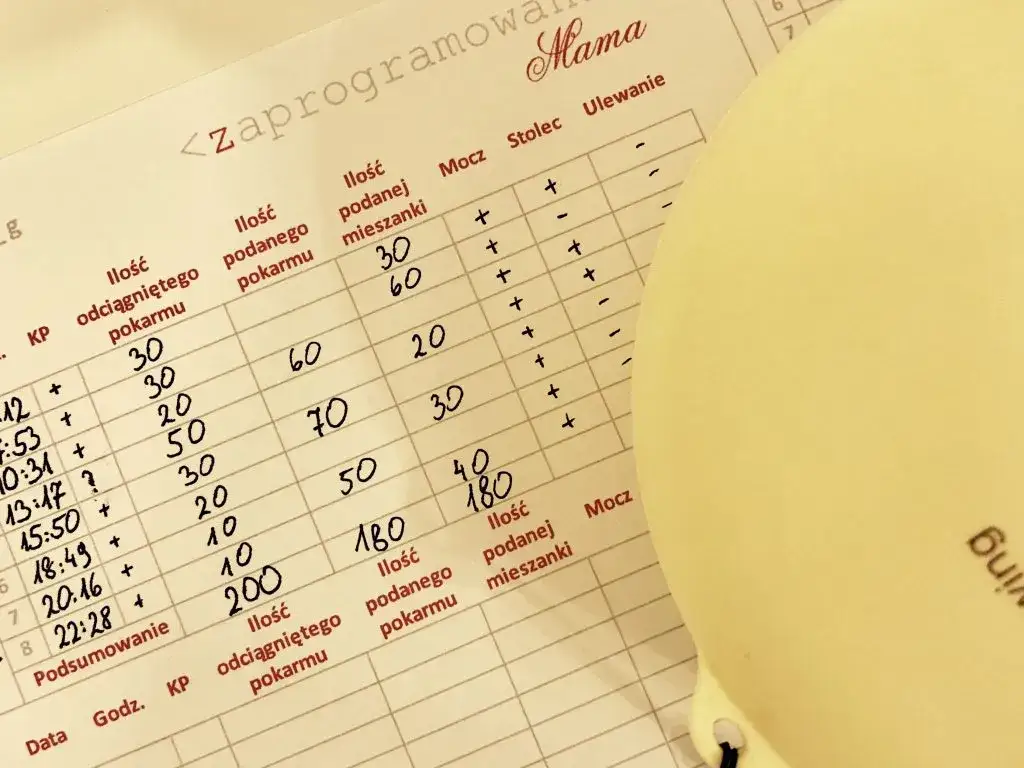 <zaprogramowan
Mama
_g
KP Ilość odciągniętego pokarmu Ilość podanego pokarmu Ilość podanej mieszanki Mocz Stolec Ulewanie
:12 + 30 30 + + -
7:53 + 30 60 + - -
10:31 + 20 60 + + -
13:17 ? 50 20 + +
15:50 + 30 70 + -
6 18:49 + 20 30 + -
7 20:16 + 10 50 + -
8 22:28 + 10 40 +
Podsumowanie 200 180 180
Data Godz. KP Ilość odciągniętego pokarmu Ilość podanego pokarmu Ilość podanej mieszanki Mocz
6
7
wing